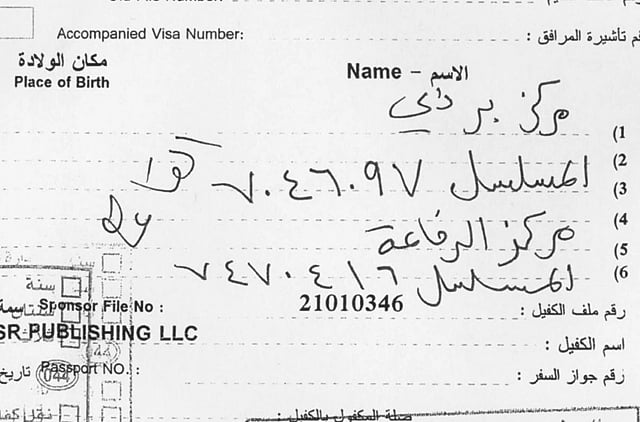 Accompanied Visa Number: رقم تأشيرة المرافق :
مكان الولادة
Place of Birth
Name – الاسم
مركز بر دبي
(1
(2
المسلسل ٧٠٤٦٠٩٧
(3
مركز الرفاعة
(4
(5
المسلسل ٧٤٧٠٤١٦
(6
سنة
Sponsor File No : 21010346 رقم ملف الكفيل :
SR PUBLISHING LLC اسم الكفيل :
044
Passport NO.: رقم جواز السفر :
044 تاريخ
نقل كفا
صلة المكفول بالكفيل :